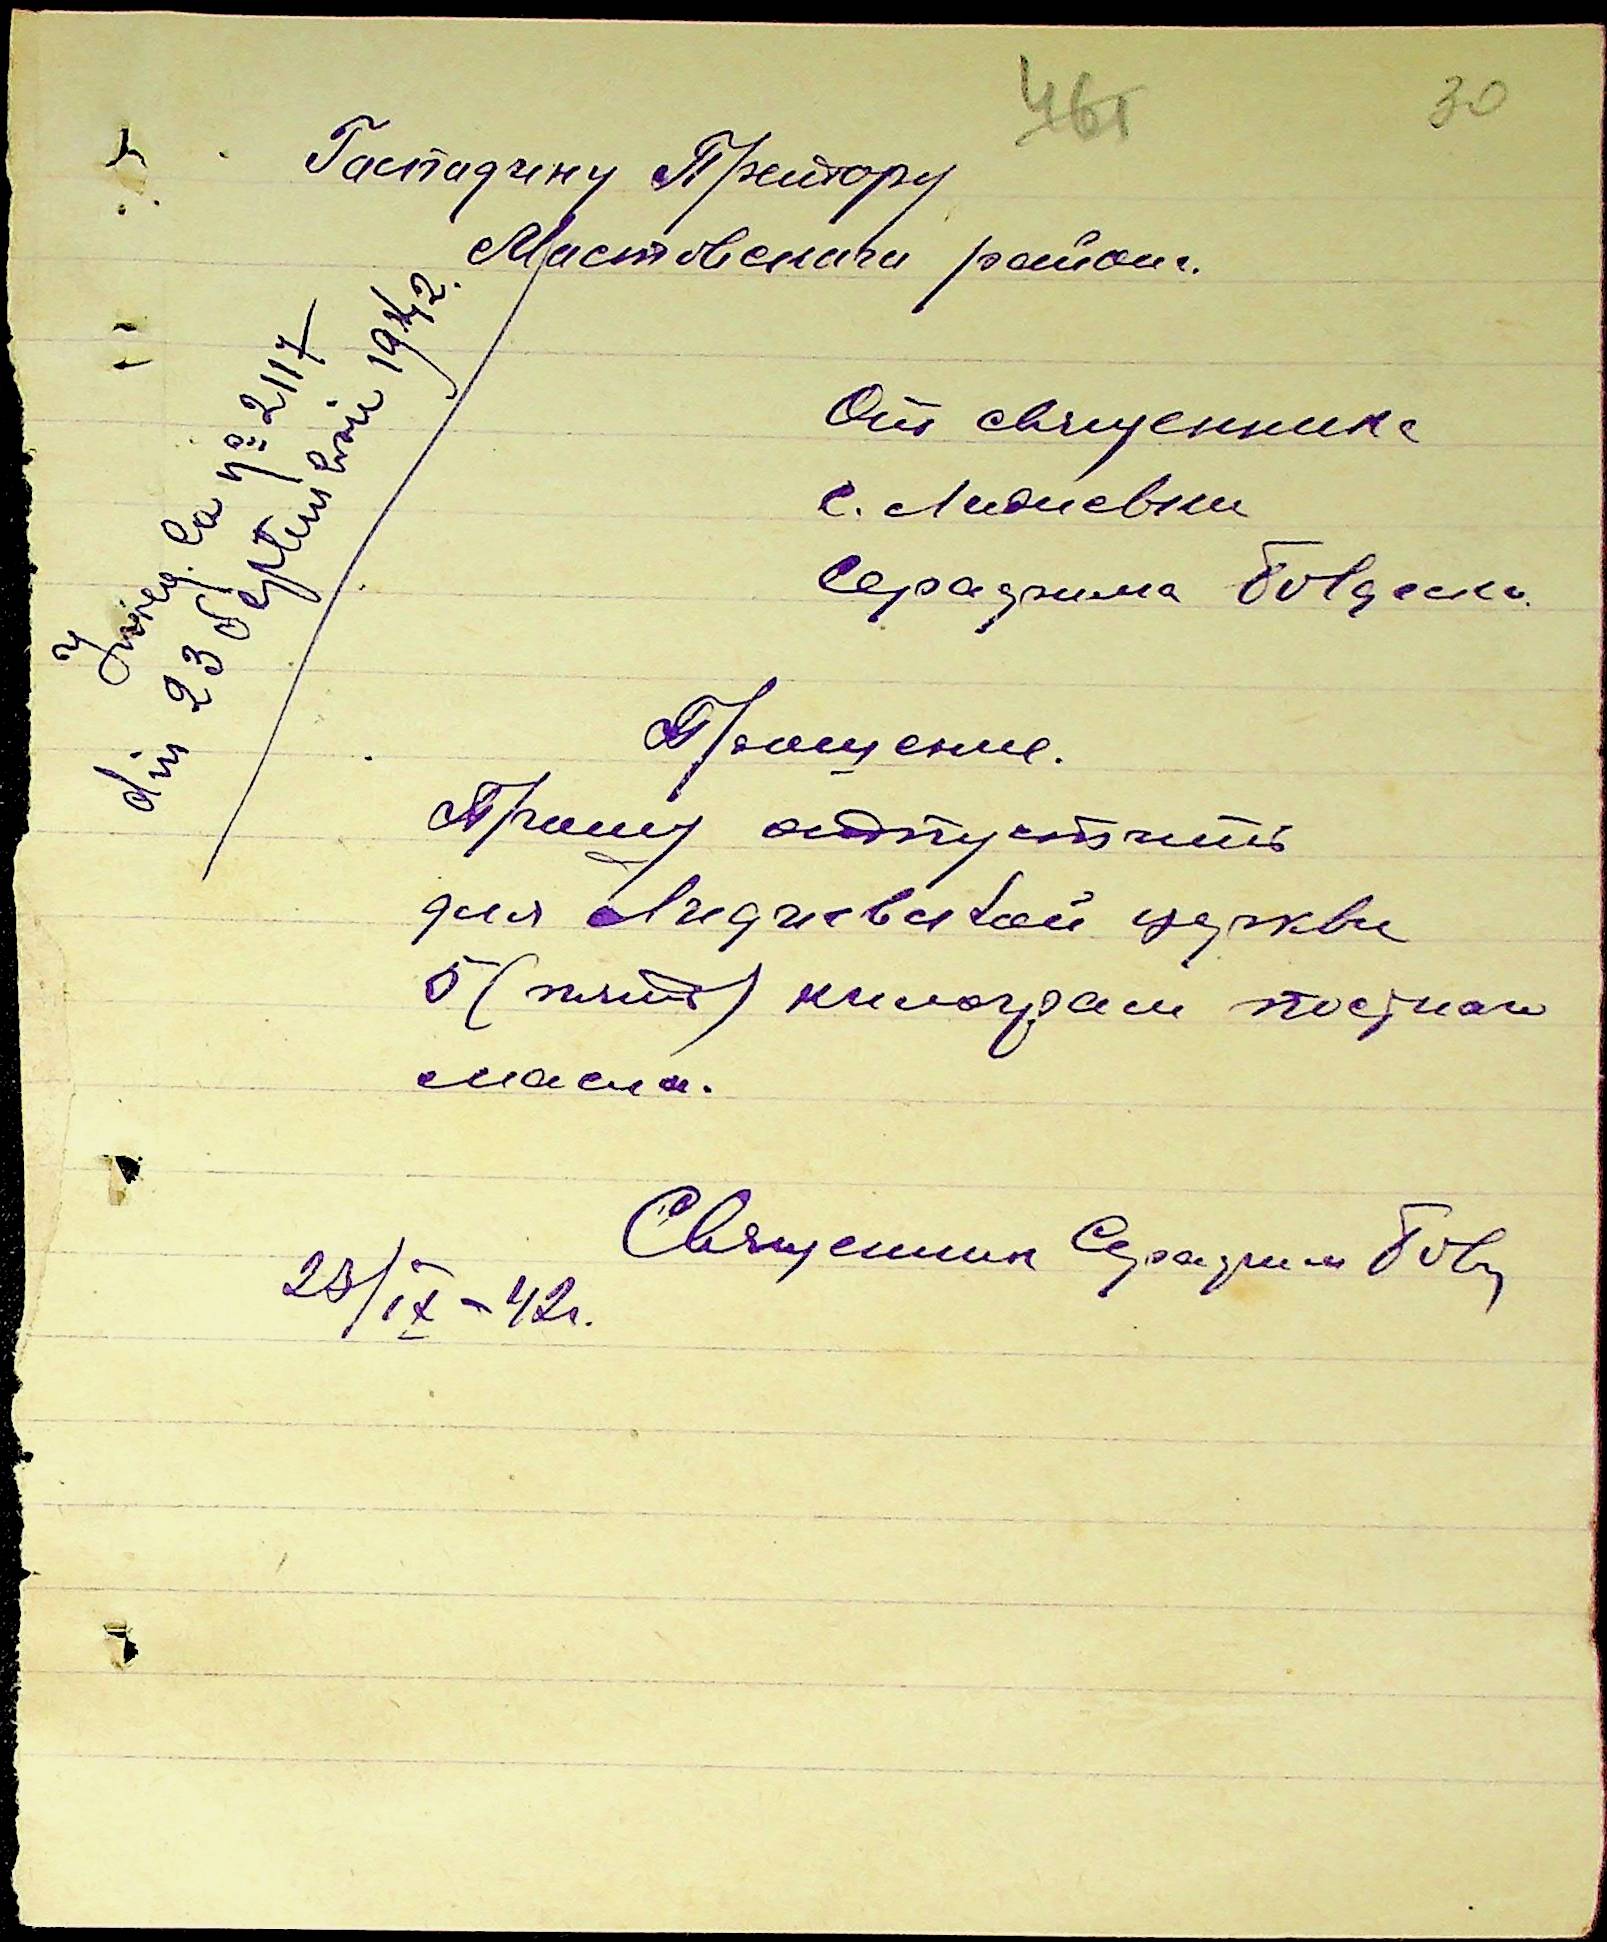 461
30
Гаспадину Претору
Мастовскаго района.
Înreg. la No 2117
din 23 Septembrie 1942.
От священника
с. Лидиевки
Серафима
Прошение.
Прошу отпустить
для Лидиевской церкви
5 (пять) килограм постнаго
масла.
Священник Серафим
23/IX - 42г.